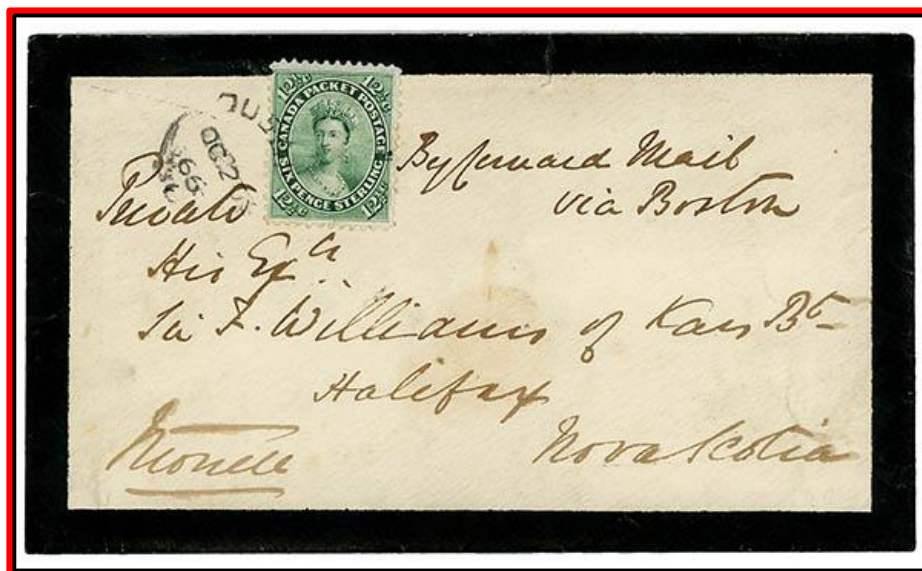 12½c 12½c
CANADA PACKET POSTAGE
SIX PENCE STERLING
12½c 12½c
OC 2
66
By Cunard Mail
via Boston
Private
His Excy
Sir F. Williams of Kars Bt
Halifax
Nova Scotia
Monck